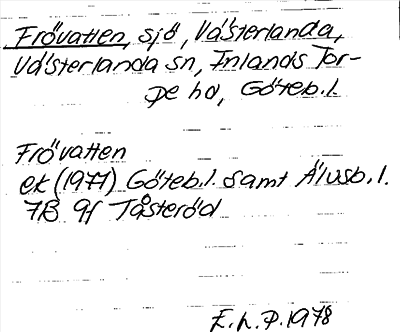 Frövatten, sjö, Västerlanda,
Västerlanda sn, Inlands Tor-
pe hd, Göteb.l.
Frövatten
ek (1971) Göteb.l. samt Älvsb.l.
7B 9f Tåsteröd
E.L.P. 1978